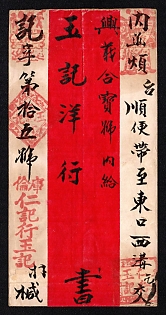 内函頌
台順便帶至東口西溝
興莊合寶號內給
玉記洋行
書
記字第拾五號
庫倫
仁記行玉記
緘